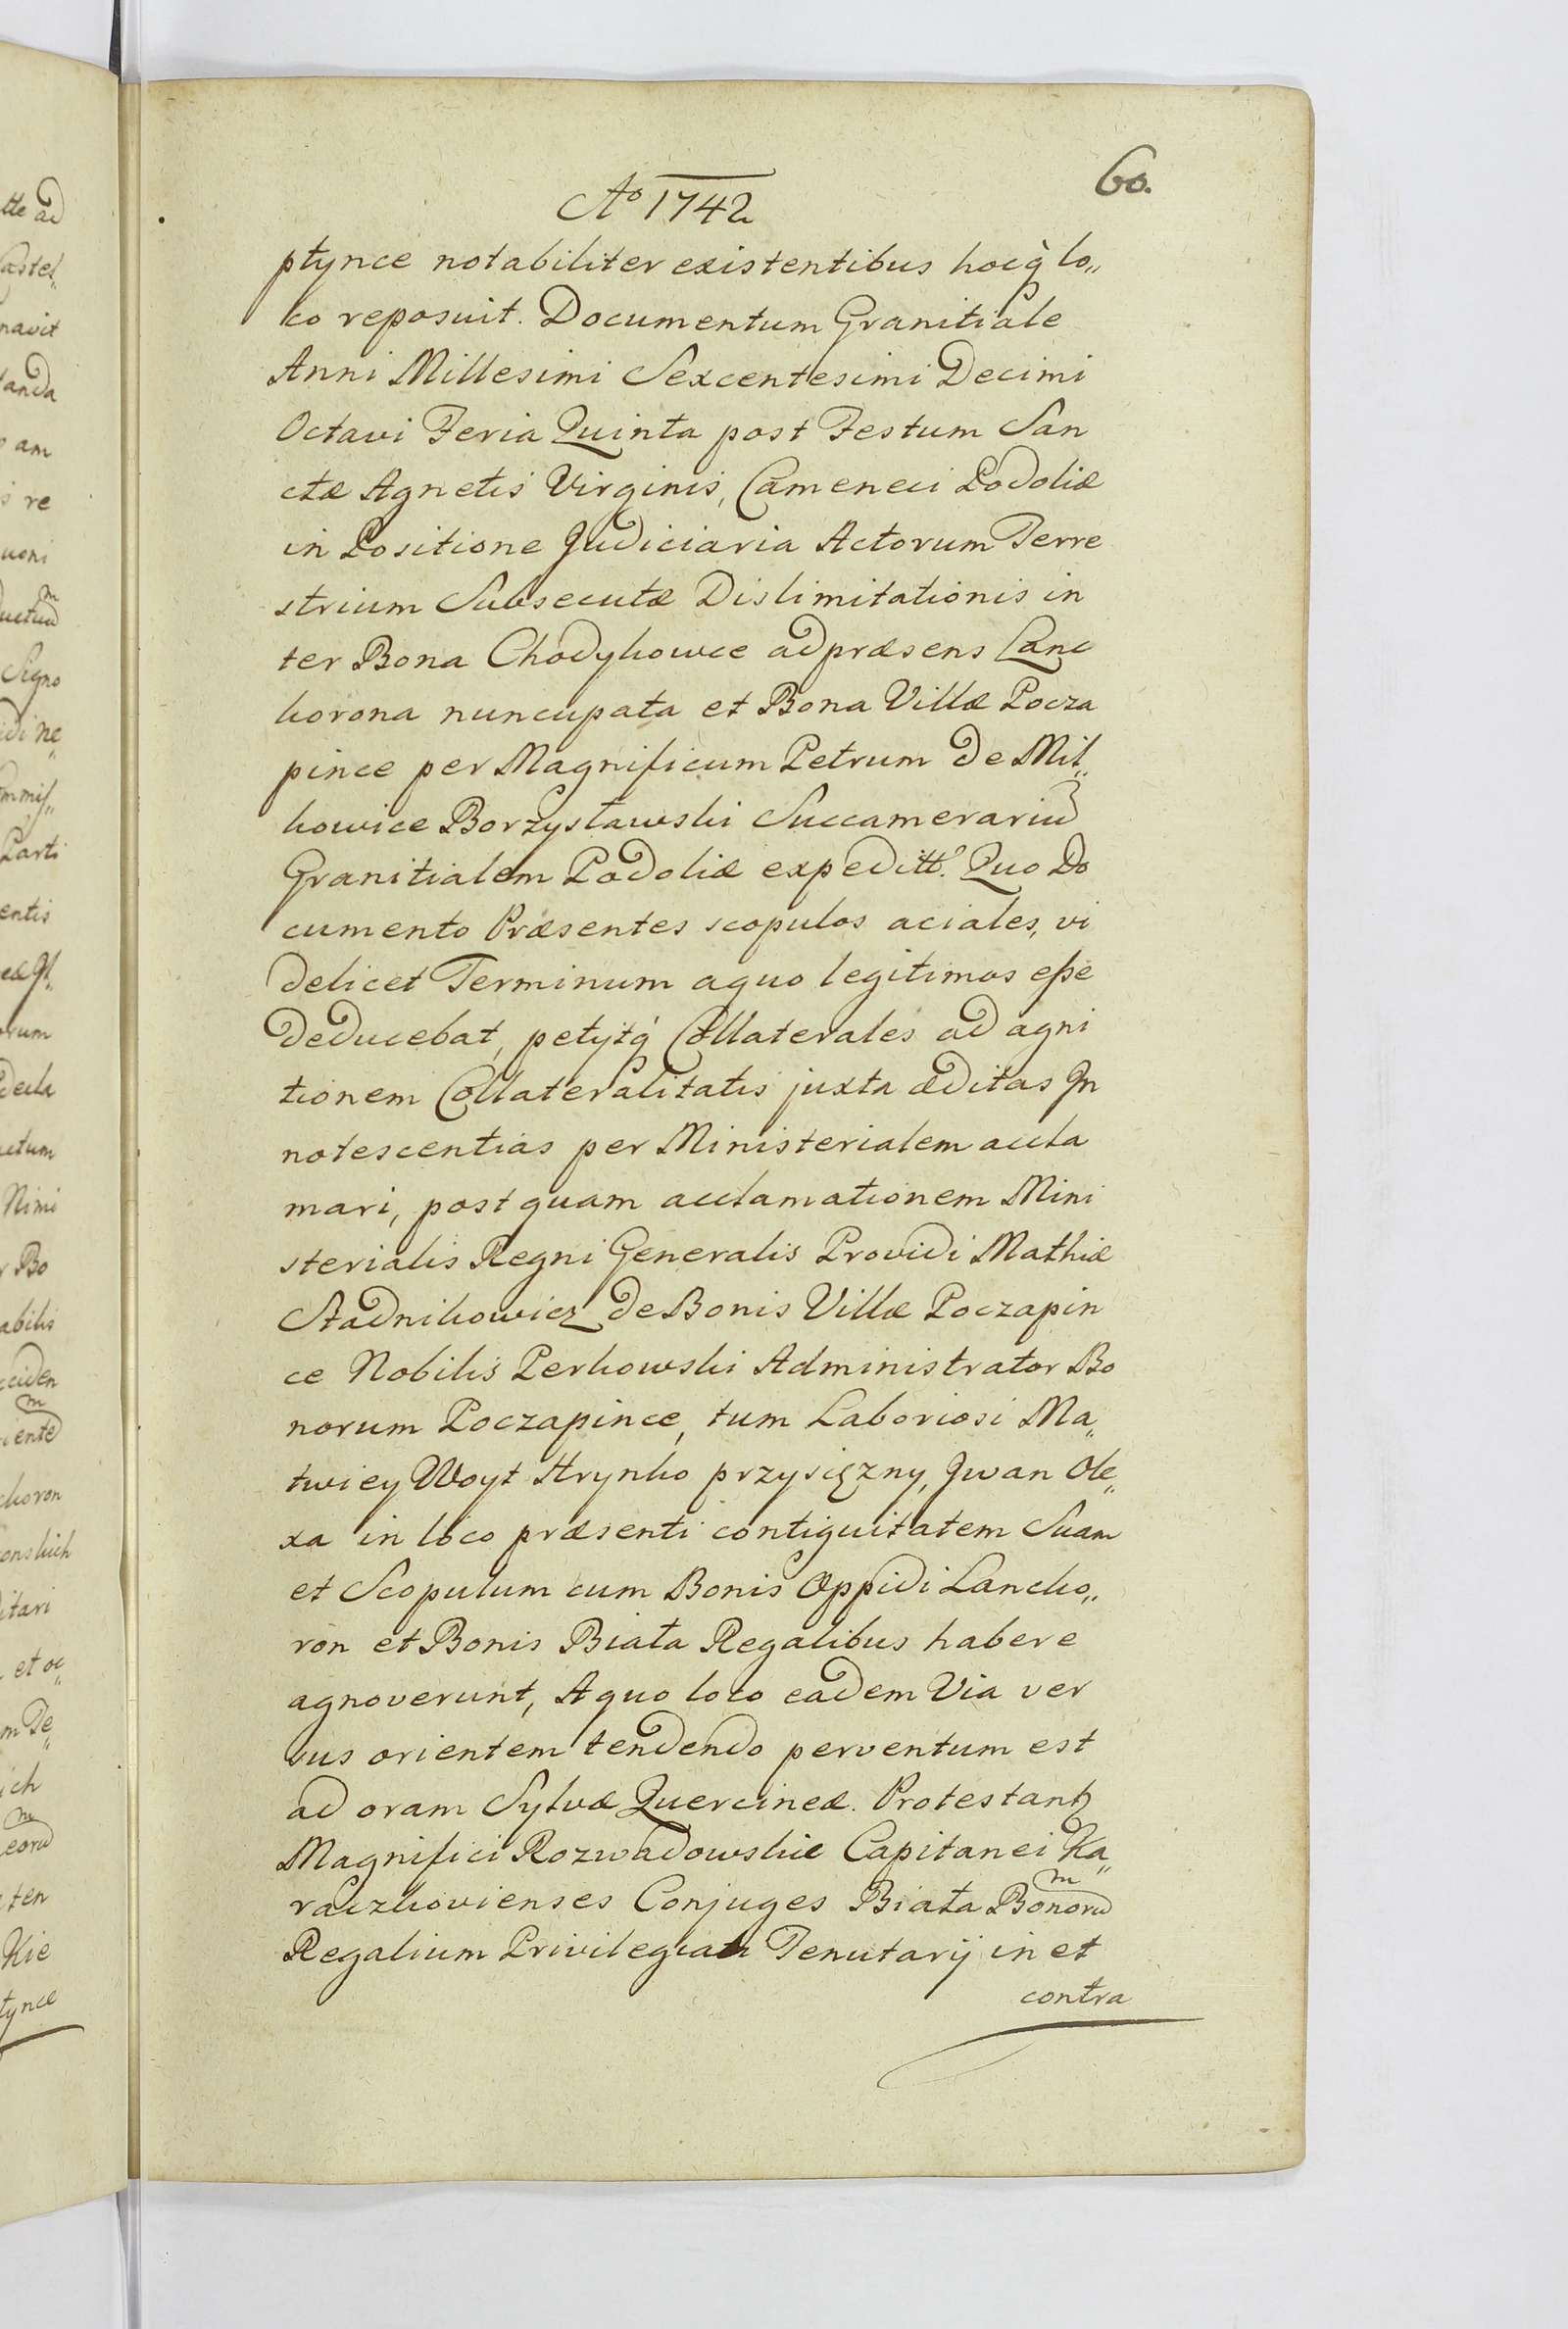 60.
Ao 1742
ptynce notabiliter existentibus hocq̀ lo„
co reposuit. Documentum Granitiale
Anni Millesimi Sexcentesimi Decimi
Octavi Feria Quinta post Festum San
ctæ Agnetis Virginis, Cameneci Podoliæ
in Positione Judiciaria Actorum Terre
strium Subsecutæ Dislimitationis in
ter Bona Chodykowce ad præsens Lanc
korona nuncupata et Bona Villæ Pocza
pince per Magnificum Petrum de Mil„
kowice Borzysławski Succamerariu
Granitialem Podoliæ expeditt. Quo Do
cumento Præsentes scopulos aciales, vi
delicet Terminum a quo legitimos eße
deducebat, petytq́ Collaterales ad agni
tionem Collateralitatis juxta æditas In
notescentias per Ministerialem accla
mari, post quam acclamationem Mini
sterialis Regni Generalis Providi Mathiæ
Stadnikowicz de Bonis Villæ Poczapin
ce Nobilis Perkowski Administrator Bo
norum Poczapince, tum Laboriosi Ma„
twiey Woyt Hrynko przysięzny, Iwan Ole„
xa in loco præsenti contiguitatem Suam
et Scopulum cum Bonis Oppidi Lancko„
ron et Bonis Biała Regalibus habere
agnoverunt, A quo loco eadem Via ver
sus orientem tendendo perventum est
ad oram Sylvæ Quercineæ. Protestant
Magnifici Rozwadowskie Capitanei Ka„
raczkovienses Conjuges Biała Bonoru
Regalium Privilegiati Tenutarij in et
contra